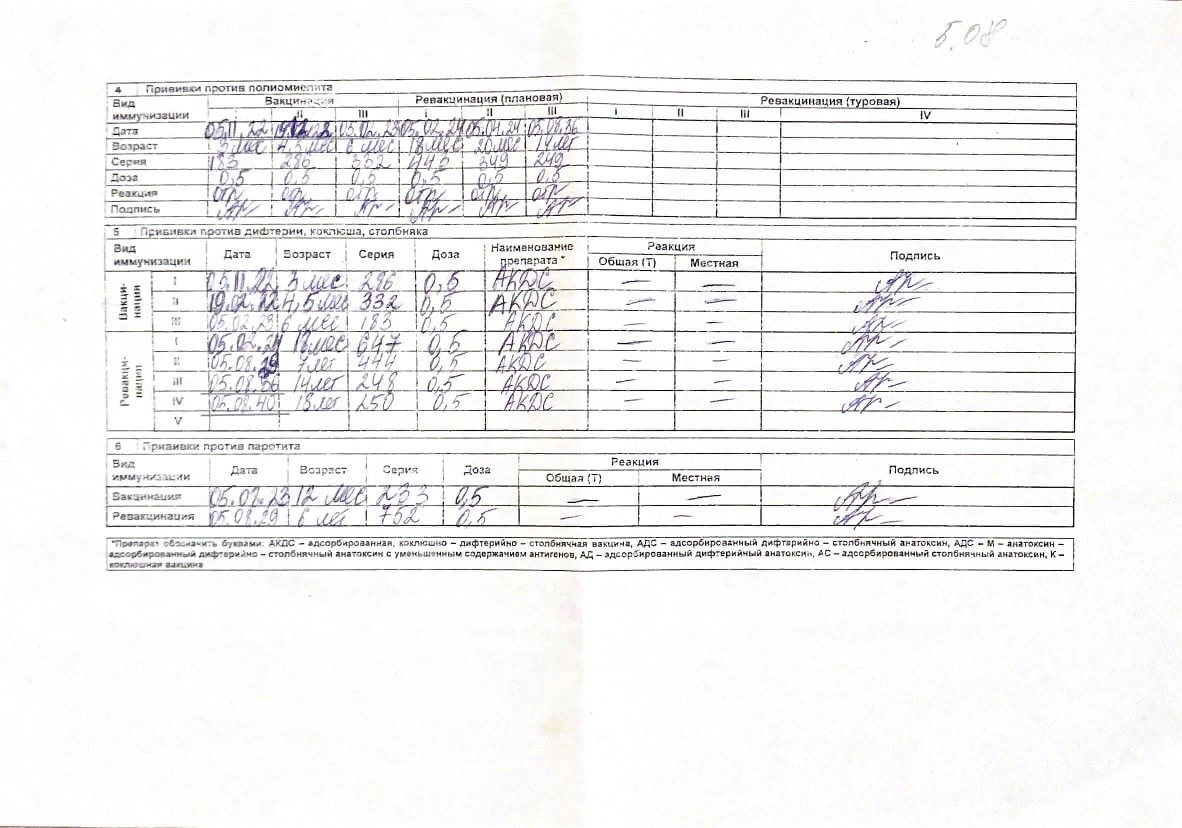 5.08
4 Прививки против полиомиелита
Вид иммунизации Вакцинация Ревакцинация (плановая) Ревакцинация (туровая)
II III I II III I II III IV
Дата 05.11.22 19.02.22 05.02.23 05.02.24 05.04.24 05.08.36
Возраст 3 мес 4,5 мес 6 мес 18 мес 20 мес 14 лет
Серия 183 286 332 443 349 249
Доза 0,5 0,5 0,5 0,5 0,5 0,5
Реакция отр отр отр отр отр отр
Подпись
5 Прививки против дифтерии, коклюша, столбняка
Вид иммунизации Дата Возраст Серия Доза Наименование препарата * Реакция Подпись
Общая (Т) Местная
Вакцинация I 05.11.22 3 мес. 286 0,5 АКДС — —
II 19.02.22 4,5 мес 332 0,5 АКДС — —
III 05.02.23 6 мес 183 0,5 АКДС — —
Ревакцинация I 05.02.24 18 мес 647 0,5 АКДС — —
II 05.08.29 7 лет 444 0,5 АКДС — —
III 05.08.36 14 лет 248 0,5 АКДС — —
IV 05.08.40 18 лет 250 0,5 АКДС — —
V
6 Прививки против паротита
Вид иммунизации Дата Возраст Серия Доза Реакция Подпись
Общая (Т) Местная
Вакцинация 05.08.23 12 мес 233 0,5 — —
Ревакцинация 05.08.29 6 лет 752 0,5 — —
*Препарат обозначить буквами: АКДС – адсорбированная, коклюшно – дифтерийно – столбнячная вакцина, АДС – адсорбированный дифтерийно – столбнячный анатоксин, АДС – М – анатоксин –
адсорбированный дифтерийно – столбнячный анатоксин с уменьшенным содержанием антигенов, АД – адсорбированный дифтерийный анатоксин, АС – адсорбированный столбнячный анатоксин, К –
коклюшная вакцина